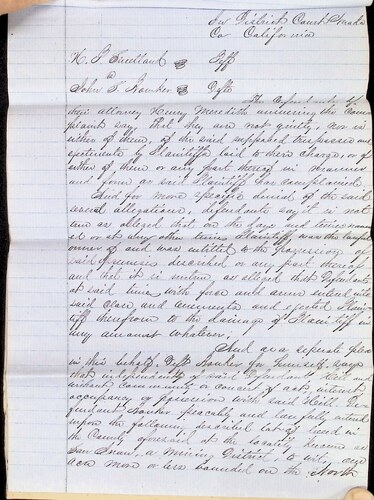 In District Court
Co California
H. F.
Plff
John T.
Dfts
The defendants by
their attorney Henry Meredith answering the Com
plaint say that they are not guilty, nor is
either of them, of the said supposed trespasses and
ejectments by Plaintiffs laid to their charge, or of
either of them or any part thereof in manner
and form as said Plaintiff has complained
And for more specific denial of the said
several allegations, defendants say it is not
true as alleged that on the day and time
ed or at any other time Plaintiff was the lawful
owner of and was entitled to the possession of
said premises described or any part thereof
and that it is untrue as alleged that Defendants
at said time with force and arms entered into
said close, and and ejected Plain
tiff therefrom to the damage of Plaintiff in
any amount whatever.
And as a separate plea
in this behalf, Dft for himself, says
that independently of said Defendant Hill and
without community or concert of act, interest
occupancy or possession with said Hill De
fendant peaceably and lawfully entered
upon the following described lot of land in
the County aforesaid at the locality known as
San Juan, a Mining District, to wit, one
acre more or less bounded on the North